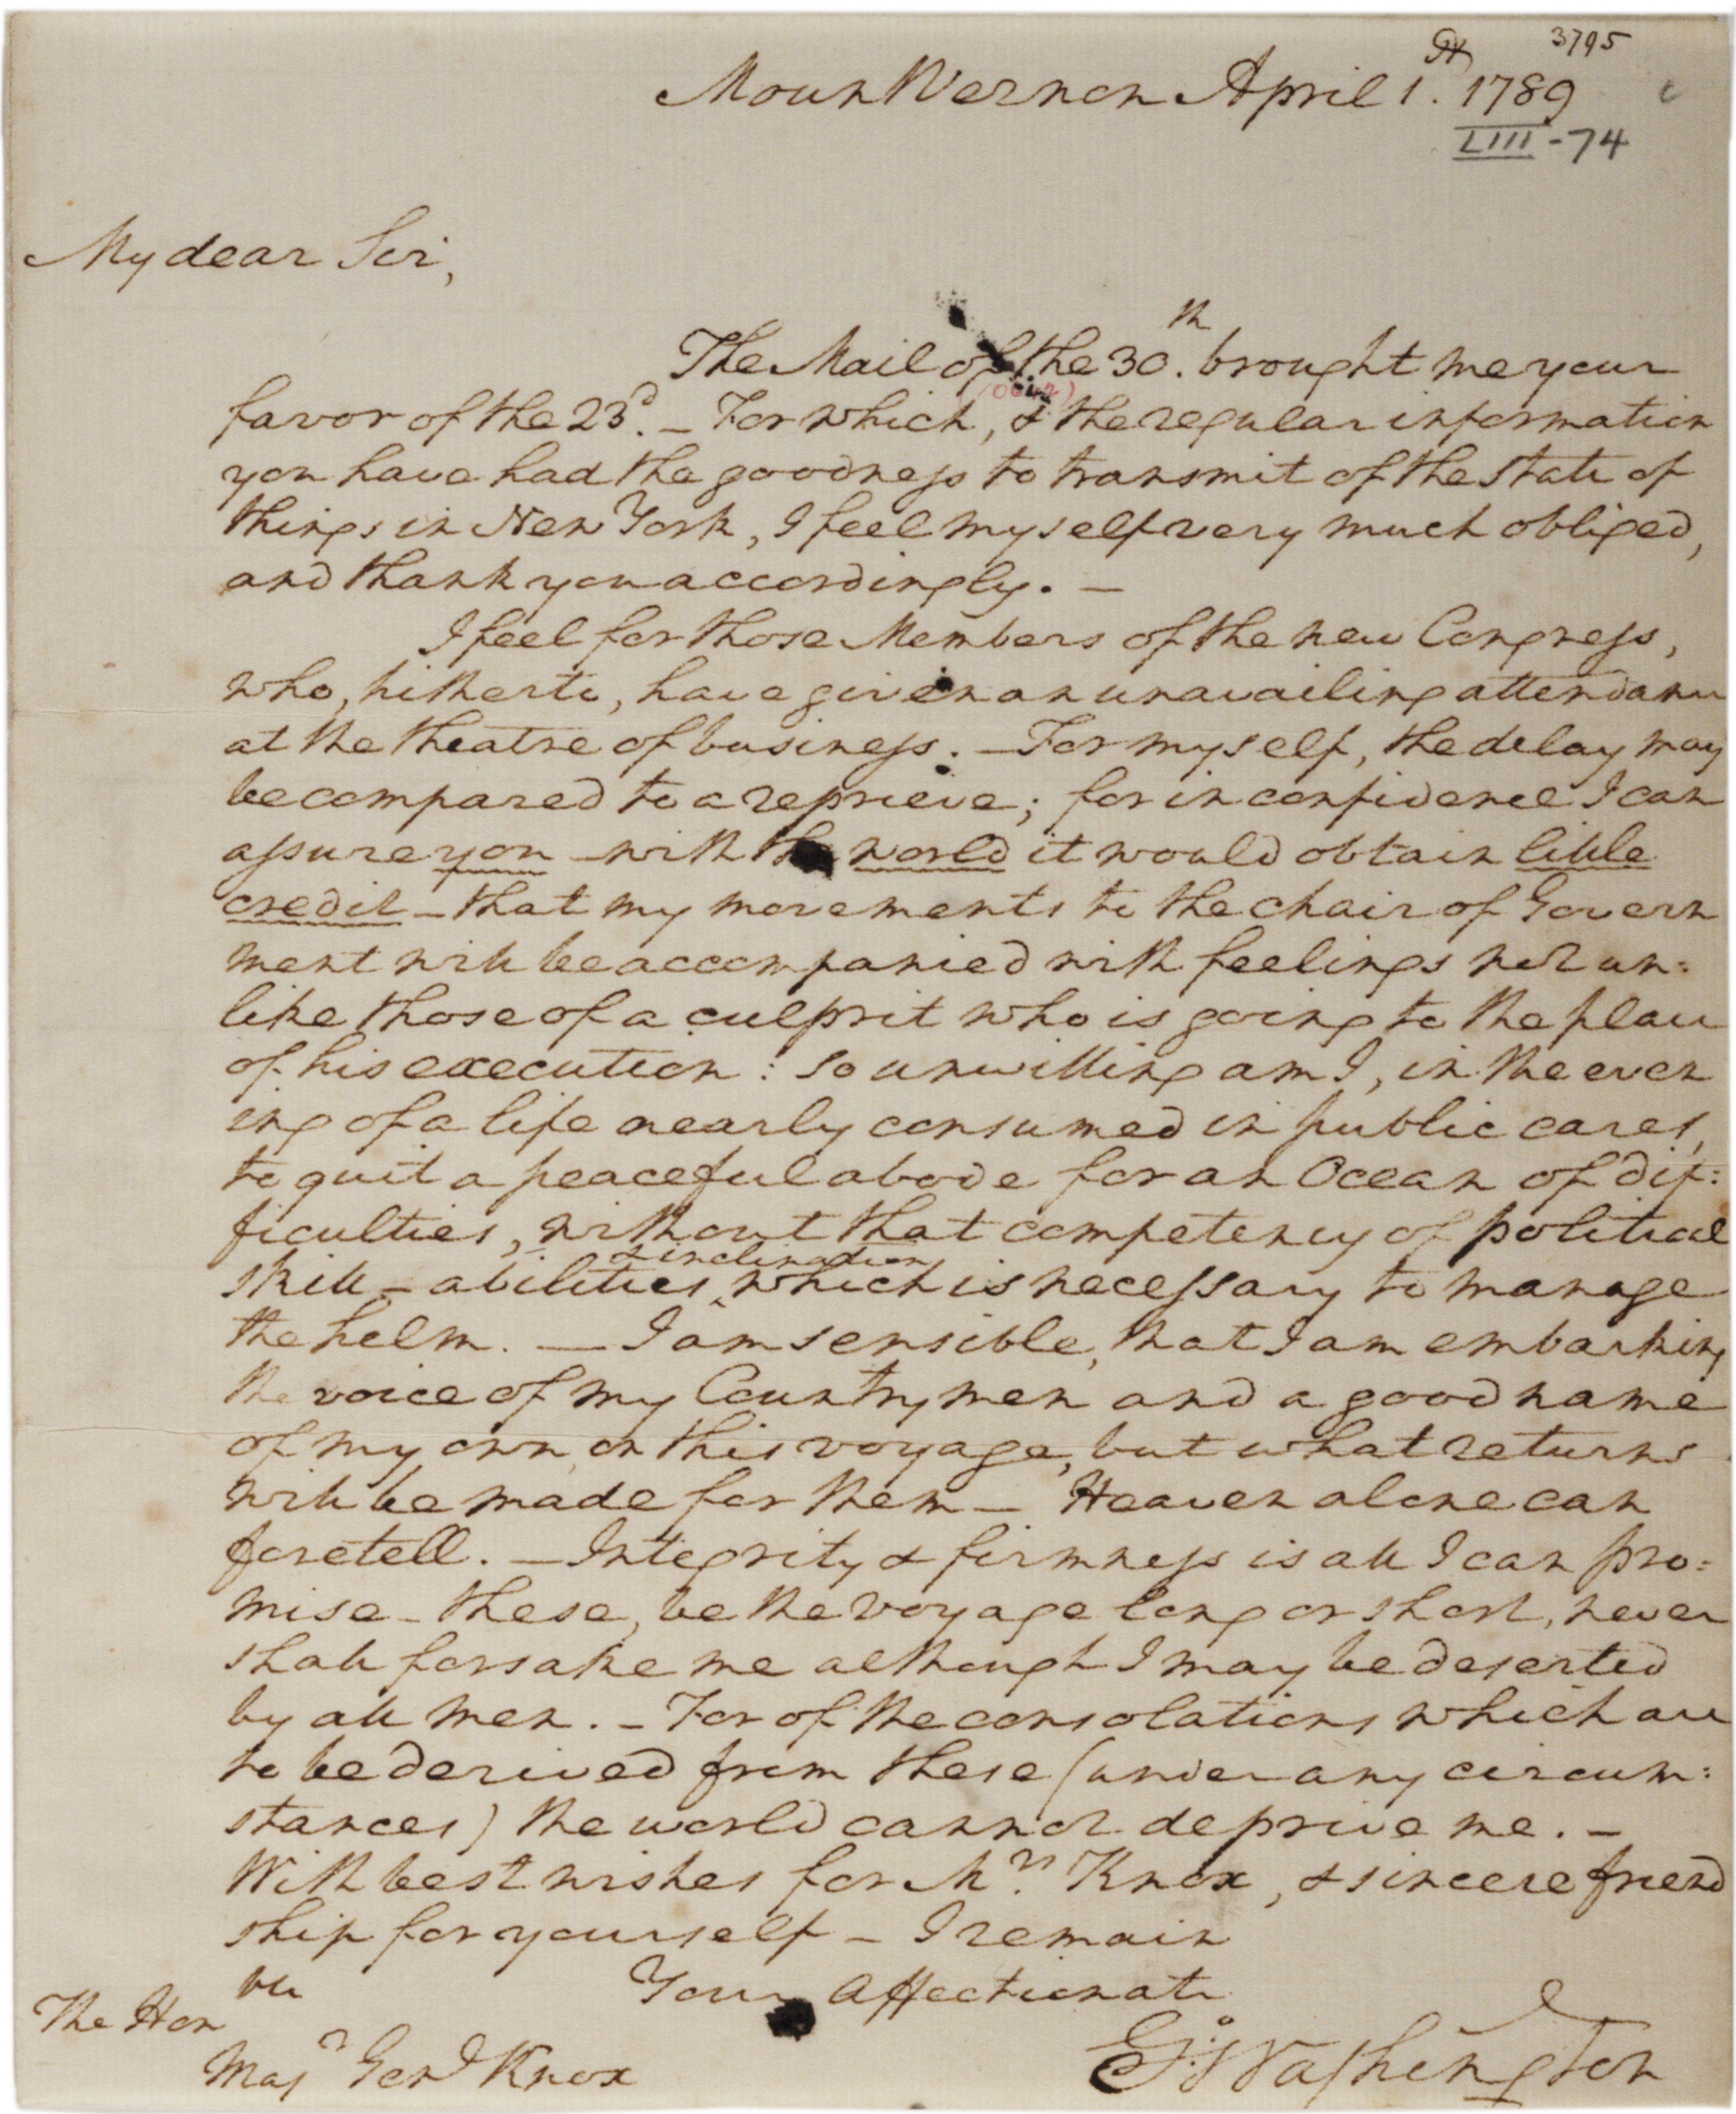 3795
Mount Vernon April 1st. 1789
LIII-74
My dear Sir,
The Mail of the 30th. brought me your
favor of the 23d. – For which, & the regular information
you have had the goodness to transmit of the state of
things in New York, I feel myself very much obliged,
and thank you accordingly. –
I feel for those Members of the new Congress,
who, hitherto, have given an unavailing attendance
at the theatre of business. – For myself, the delay may
be compared to a reprieve; for in confidence I can
assure you – with the world it would obtain little
credit – that my movements to the chair of Govern
ment will be accompanied with feelings not un:
like those of a culprit who is going to the place
of his execution: so unwilling am I, in the even
ing of a life nearly consumed in public cares,
to quit a peaceful abode for an Ocean of dif:
ficulties, without that competency of political
skill – abilities & inclination which is necessary to manage
the helm. – I am sensible, that I am embarking
the voice of my Countrymen and a good name
of my own, on this voyage, but what returns
will be made for them – Heaven alone can
foretell. – Integrity & firmness is all I can pro:
mise – these, be the voyage long or short, never
shall forsake me although I may be deserted
by all men. – For of the consolations which are
to be derived from these (under any circum:
stances) the world cannot deprive me. –
With best wishes for Mrs. Knox, & sincere friend
ship for yourself – I remain
Your affectionate
Go: Washington
The Honble
Majr Genl Knox